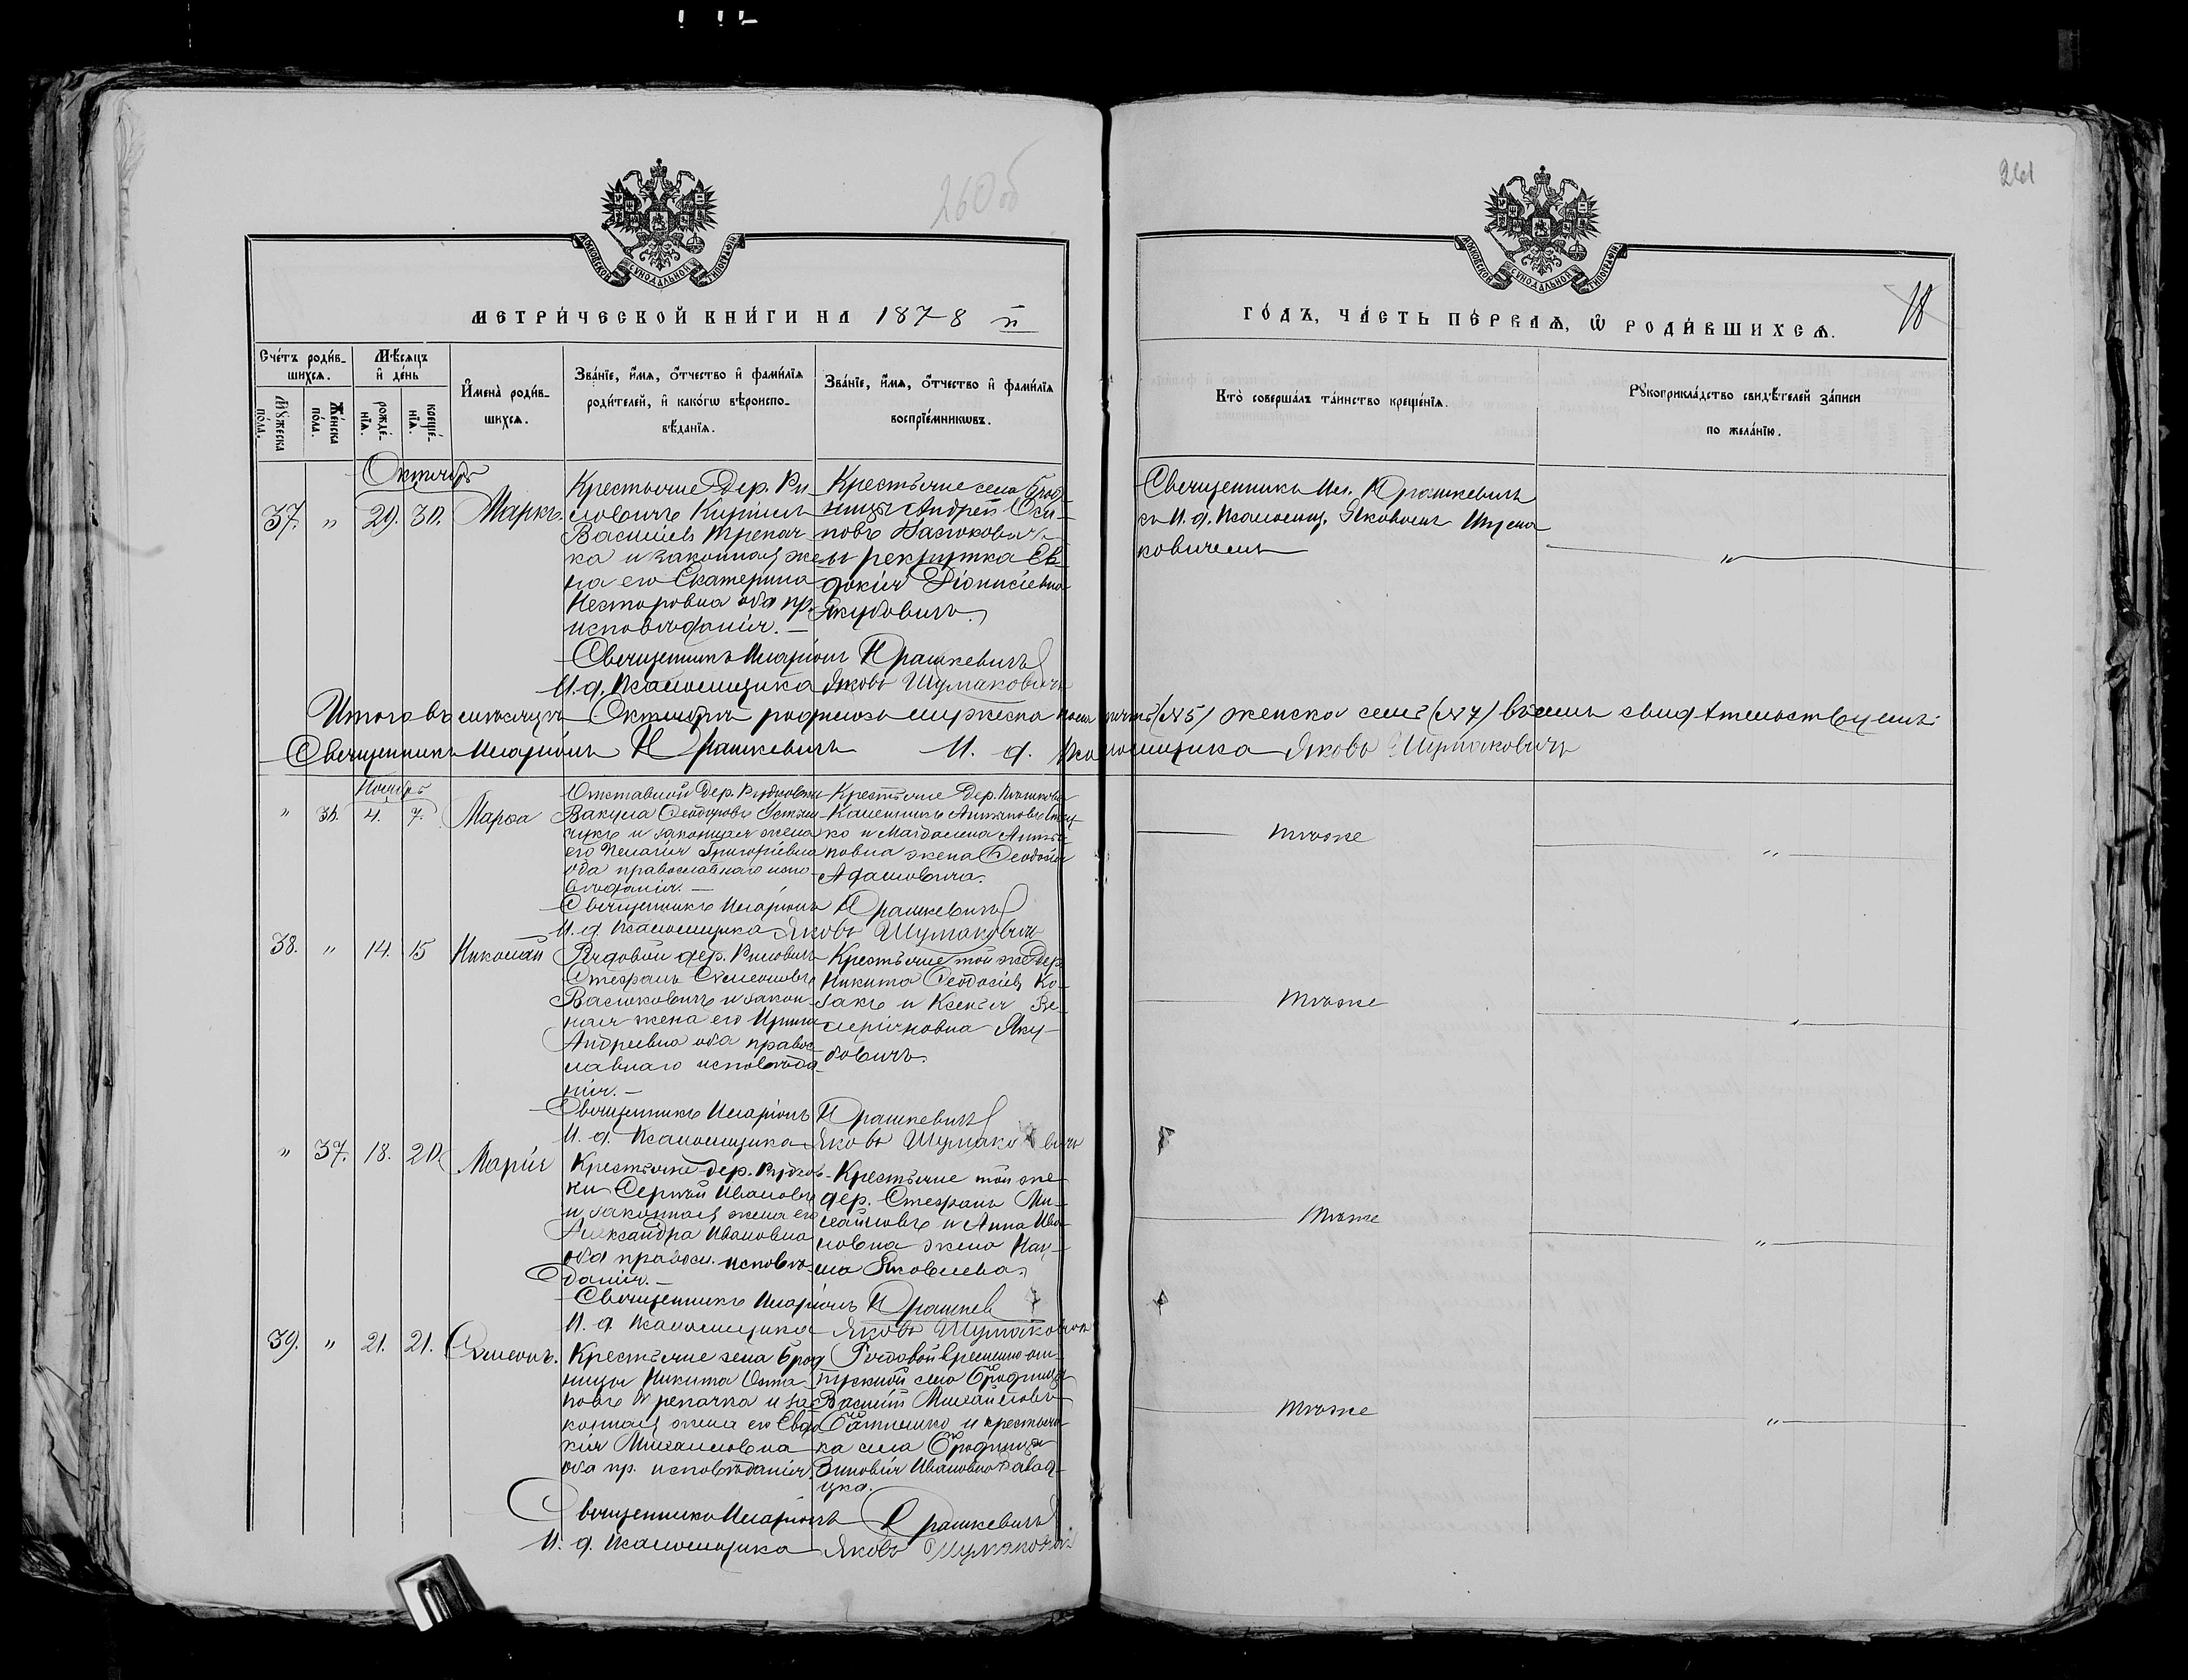 260об
261
МОСКОВСКОЙ СѴНОДАЛЬНОЙ ТИПОГРАФІИ
МОСКОВСКОЙ СѴНОДАЛЬНОЙ ТИПОГРАФІИ
МЕТРИ́ЧЕСКОЙ КНИ́ГИ НА 1878 й
ГО́ДЪ, ЧА́СТЬ ПЕ́РВАѦ, Ѡ РОДИ́ВШИХСѦ.
18
Сче́тъ роди́в-
шихсѧ.
Мꙋ́жеска по́ла.
Же́нска по́ла.
Мѣ́сѧцъ
и҆ де́нь
рожде́-
нїѧ.
креще́-
нїѧ.
И҆мена̀ роди́в-
шихсѧ.
Зва́нїе, и҆́мѧ, ѻ҆́тчество и҆ фами́лїѧ
роди́телей, и҆ како́гѡ вѣроиспо-
вѣ́данїѧ.
Зва́нїе, и҆́мѧ, ѻ҆́тчество и҆ фами́лїѧ
воспрїе́мникѡвъ.
Кто̀ соверша́лъ та́инство креще́нїѧ.
Рꙋкоприкла́дство свидѣ́телей за́писи
по жела́нїю.
Октябрь
37. " 29. 30. Маркъ.
Крестьяне Дер. Ри-
ловичъ Кириллъ
Васильевъ Трепач-
ка и законная же-
на его Екатерина
Несторовна оба пр.
исповѣданія. —
Крестьяне села Брод-
ницы Андрей Оси-
повъ Васюкович
и рекрутка Ев-
докія Діонисіевна
Якубовичъ.
Священникъ Ил. Прашкевичъ
съ И. д. Псаломщ. Яковомъ Шума
ковичемъ
"
Священникъ Иларіонъ Прашкевичъ
И. д. Псаломщика Яковъ Шумаковичъ
Итого въ мѣсяцѣ Октябрѣ родилось мужеска пола пять (№5) женска семь (№7) въ чемъ свидѣтельствуемъ:
Священникъ Иларіонъ Прашкевичъ И. д. Псаломщика Яковъ Шумаковичъ
Ноябрь
" 36. 4. 7. Марѳа
Отставной Дер. Рудковки
Вакула Ѳеодоровъ
и законная жена
его Пелагія Григоріевна
оба православнаго испо-
вѣданія. —
Крестьяне Дер.
и Магдалина Анти-
повна жена Ѳеодосія
Адамовича.
Тѣже
"
Священникъ Иларіонъ Прашкевичъ
И. д. Псаломщика Яковъ Шумаковичъ
38. " 14. 15 Николай
Рядовой дер. Риловичъ
Стефанъ Сѵмеоновъ
Васюковичъ и закон-
ная жена его Ирина
Андреевна оба правос-
лавнаго исповѣда-
нія. —
Крестьяне той же Дер.
Никита Ѳеодосіевъ Ко-
закъ и Ксенія Ва-
леріановна Яку-
бовичъ.
Тѣже
Священникъ Иларіонъ Прашкевичъ
И. д. Псаломщика Яковъ Шумаковичъ
" 37. 18. 20. Марія
Крестьяне дер. Рудков-
ки Сергѣй Ивановъ
и законная жена его
Александра Ивановна
оба правосл. исповѣ-
данія. —
Крестьяне той же
дер. Стефанъ Ми-
хайловъ и Анна Ива-
новна жена Нау-
ма Яковлева.
Тѣже
"
Священникъ Иларіонъ Прашкев
И. д. Псаломщика Яковъ Шумаковичъ
39. " 21. 21. Сѵмеонъ.
Крестьяне села Брод-
ницы Никита Оста-
повъ Трепачка и за-
конная жена его Евдо-
кія Михаиловна
оба пр. исповѣданія.
Рядовой временно от-
пускной села Бродницы
Василій Михайловъ
и крестьян-
ка села Бродницы
Зиновія Ивановна Завад-
цка.
Тѣже
"
Священникъ Иларіонъ Прашкевичъ
И. д. Псаломщика Яковъ Шумаковичъ